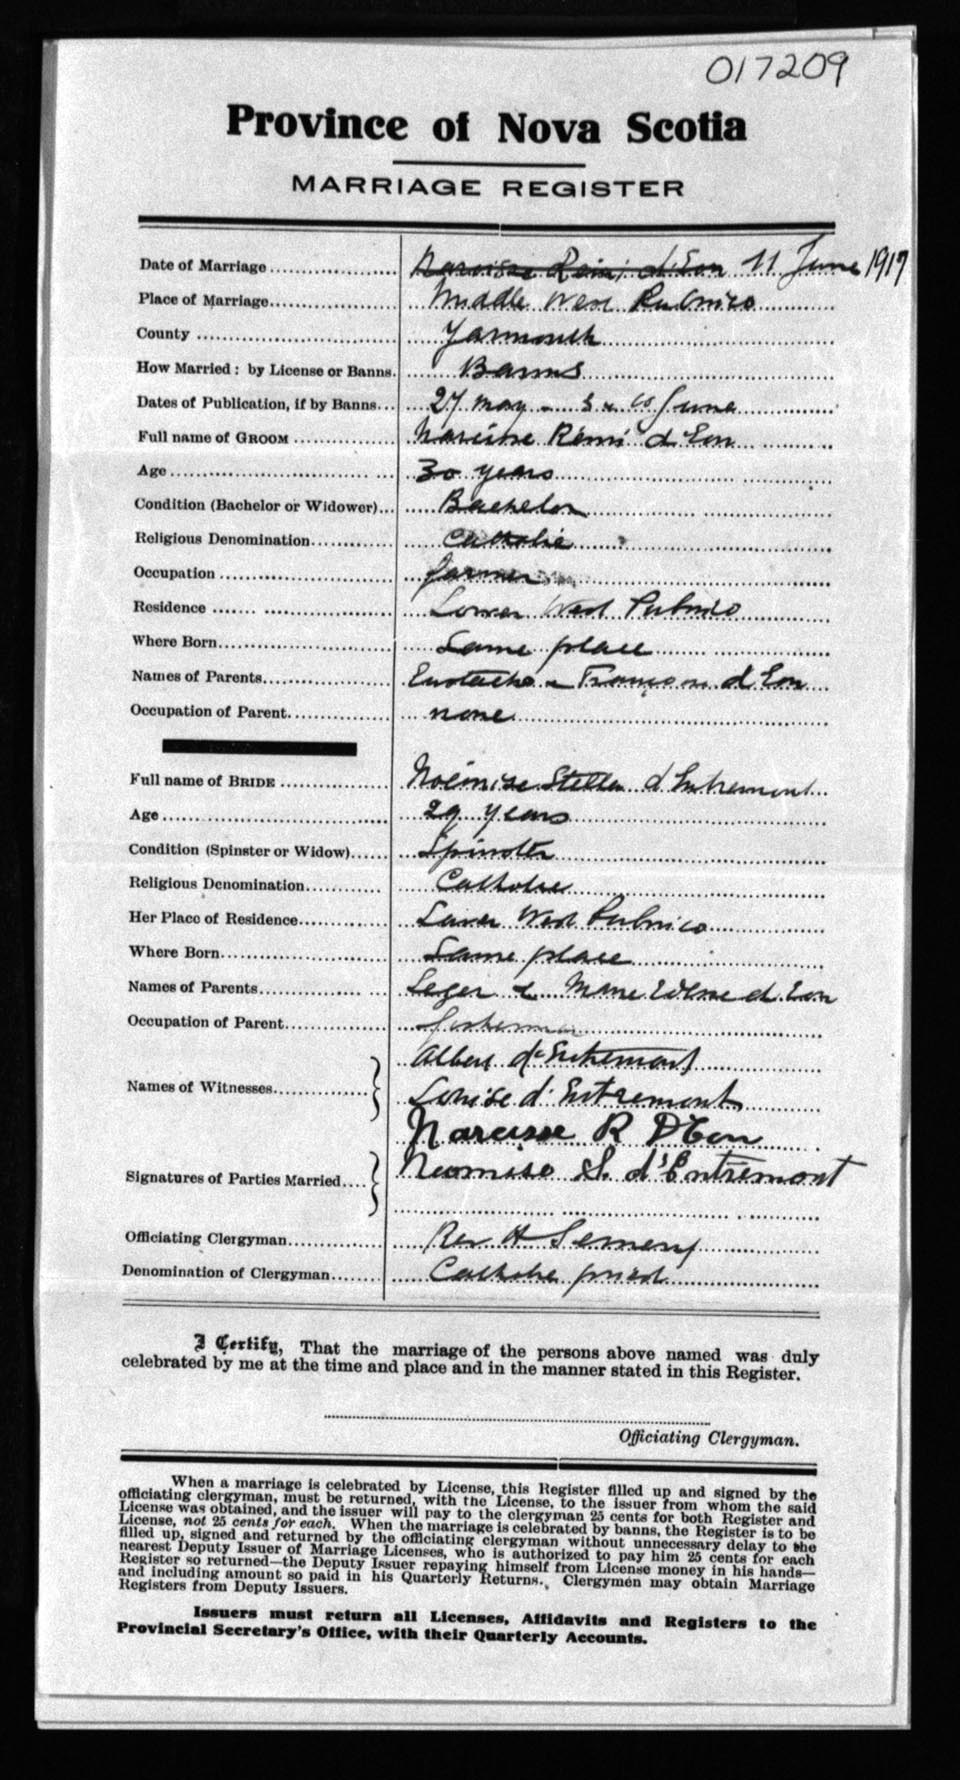 017209
Province of Nova Scotia
MARRIAGE REGISTER
Date of Marriage Narcisse Remi d'Eon 11 June 1917
Place of Marriage Middle West Pubnico
County Yarmouth
How Married: by License or Banns. Banns
Dates of Publication, if by Banns 27 May - 3 & 10 June
Full name of GROOM Narcisse Rémi d'Eon
Age 30 years
Condition (Bachelor or Widower) Bachelor
Religious Denomination Catholic
Occupation farmer
Residence Lower West Pubnico
Where Born Same place
Names of Parents Eustache & d'Eon
Occupation of Parent none
Full name of BRIDE Stella d'Entremont
Age 29 years
Condition (Spinster or Widow) Spinster
Religious Denomination Catholic
Her Place of Residence Lower West Pubnico
Where Born Same place
Names of Parents Leger & d'Eon
Occupation of Parent fisherman
Albert d'Entremont
Names of Witnesses Louise d'Entremont
Narcisse R D'Eon
Signatures of Parties Married Neomise S. d'Entremont
Officiating Clergyman Rev H
Denomination of Clergyman Catholic priest
I Certify, That the marriage of the persons above named was duly
celebrated by me at the time and place and in the manner stated in this Register.
Officiating Clergyman.
When a marriage is celebrated by License, this Register filled up and signed by the
officiating clergyman, must be returned, with the License, to the issuer from whom the said
License was obtained, and the issuer will pay to the clergyman 25 cents for both Register and
License, not 25 cents for each. When the marriage is celebrated by banns, the Register is to be
filled up, signed and returned by the officiating clergyman without unnecessary delay to the
nearest Deputy Issuer of Marriage Licenses, who is authorized to pay him 25 cents for each
Register so returned—the Deputy Issuer repaying himself from License money in his hands—
and including amount so paid in his Quarterly Returns. Clergymen may obtain Marriage
Registers from Deputy Issuers.
Issuers must return all Licenses, Affidavits and Registers to the
Provincial Secretary's Office, with their Quarterly Accounts.